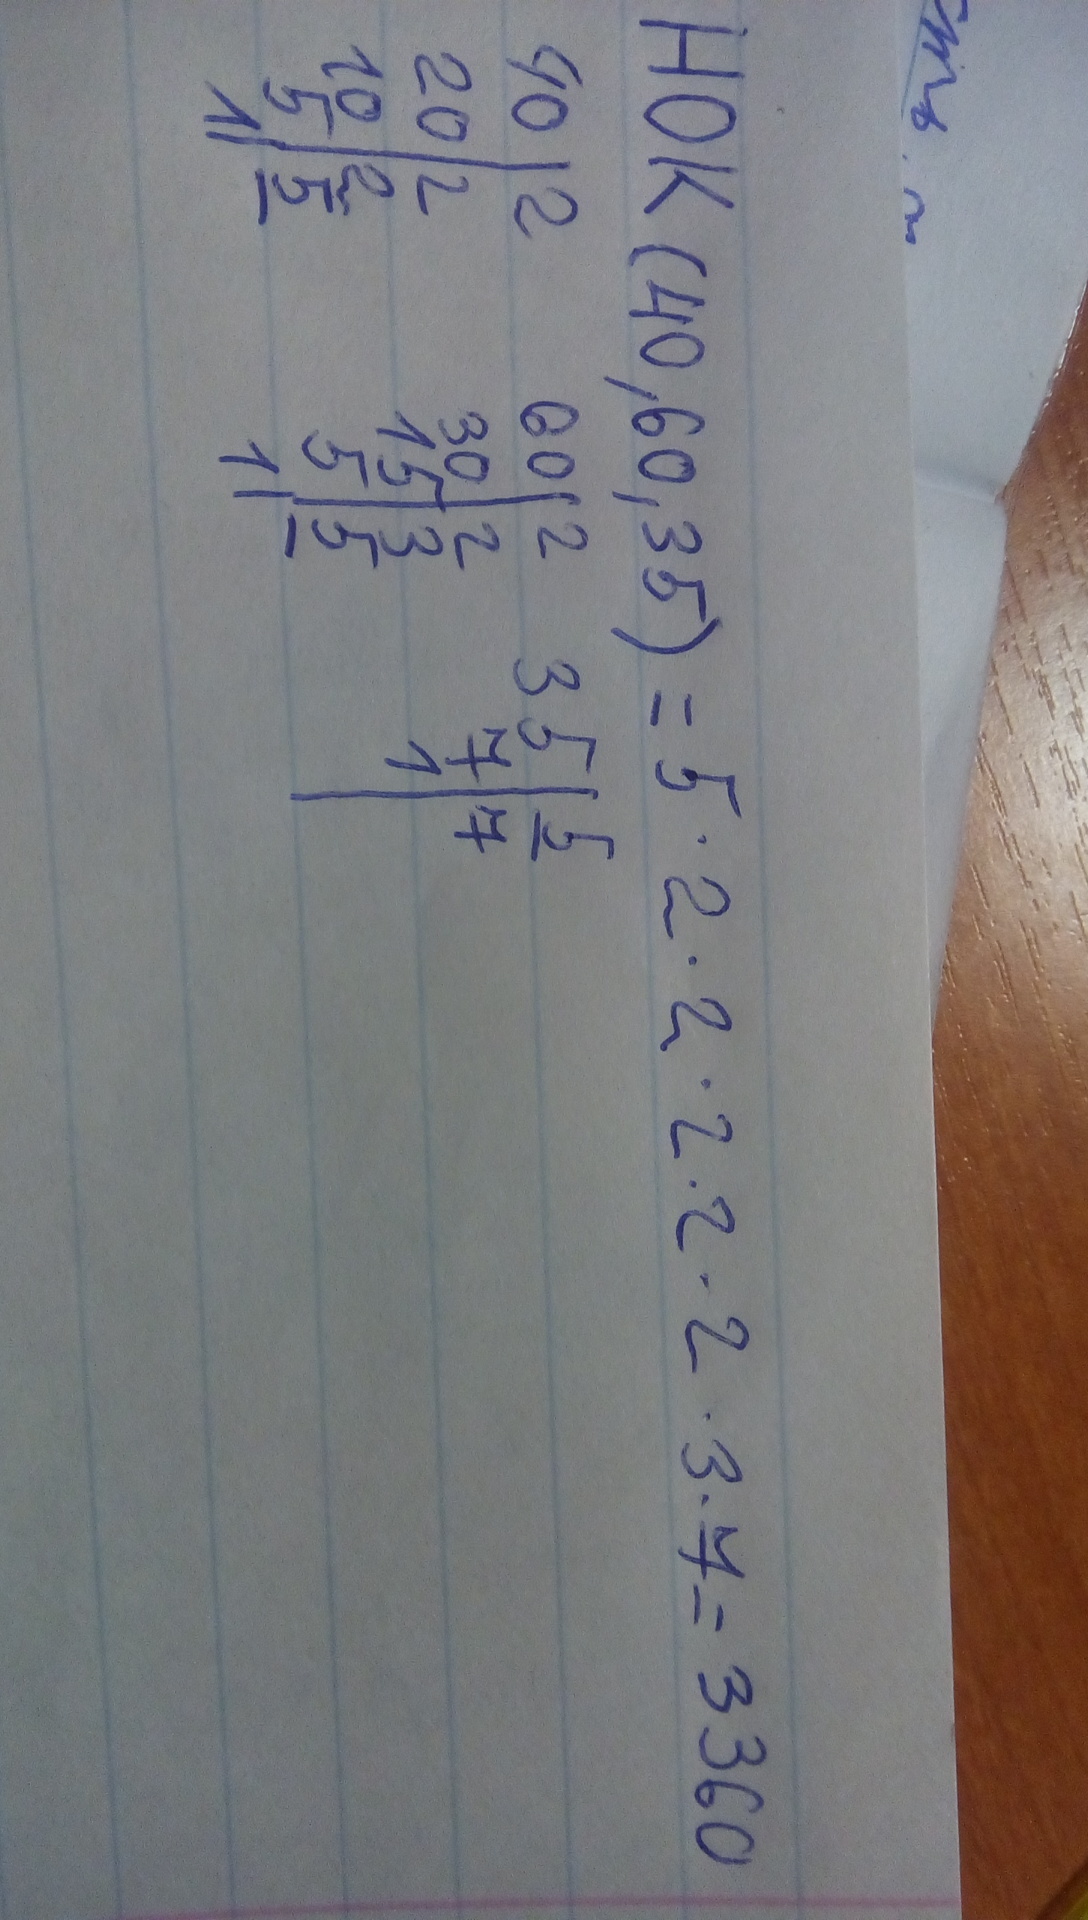 НОК (40, 60, 35) = 5 · 2 · 2 · 2 · 2 · 2 · 3 · 7 = 3360
40 | 2 60 | 2 35 | 5
20 | 2 30 | 2 7 | 7
10 | 2 15 | 3 1 |
5 | 5 5 | 5
1 | 1 |